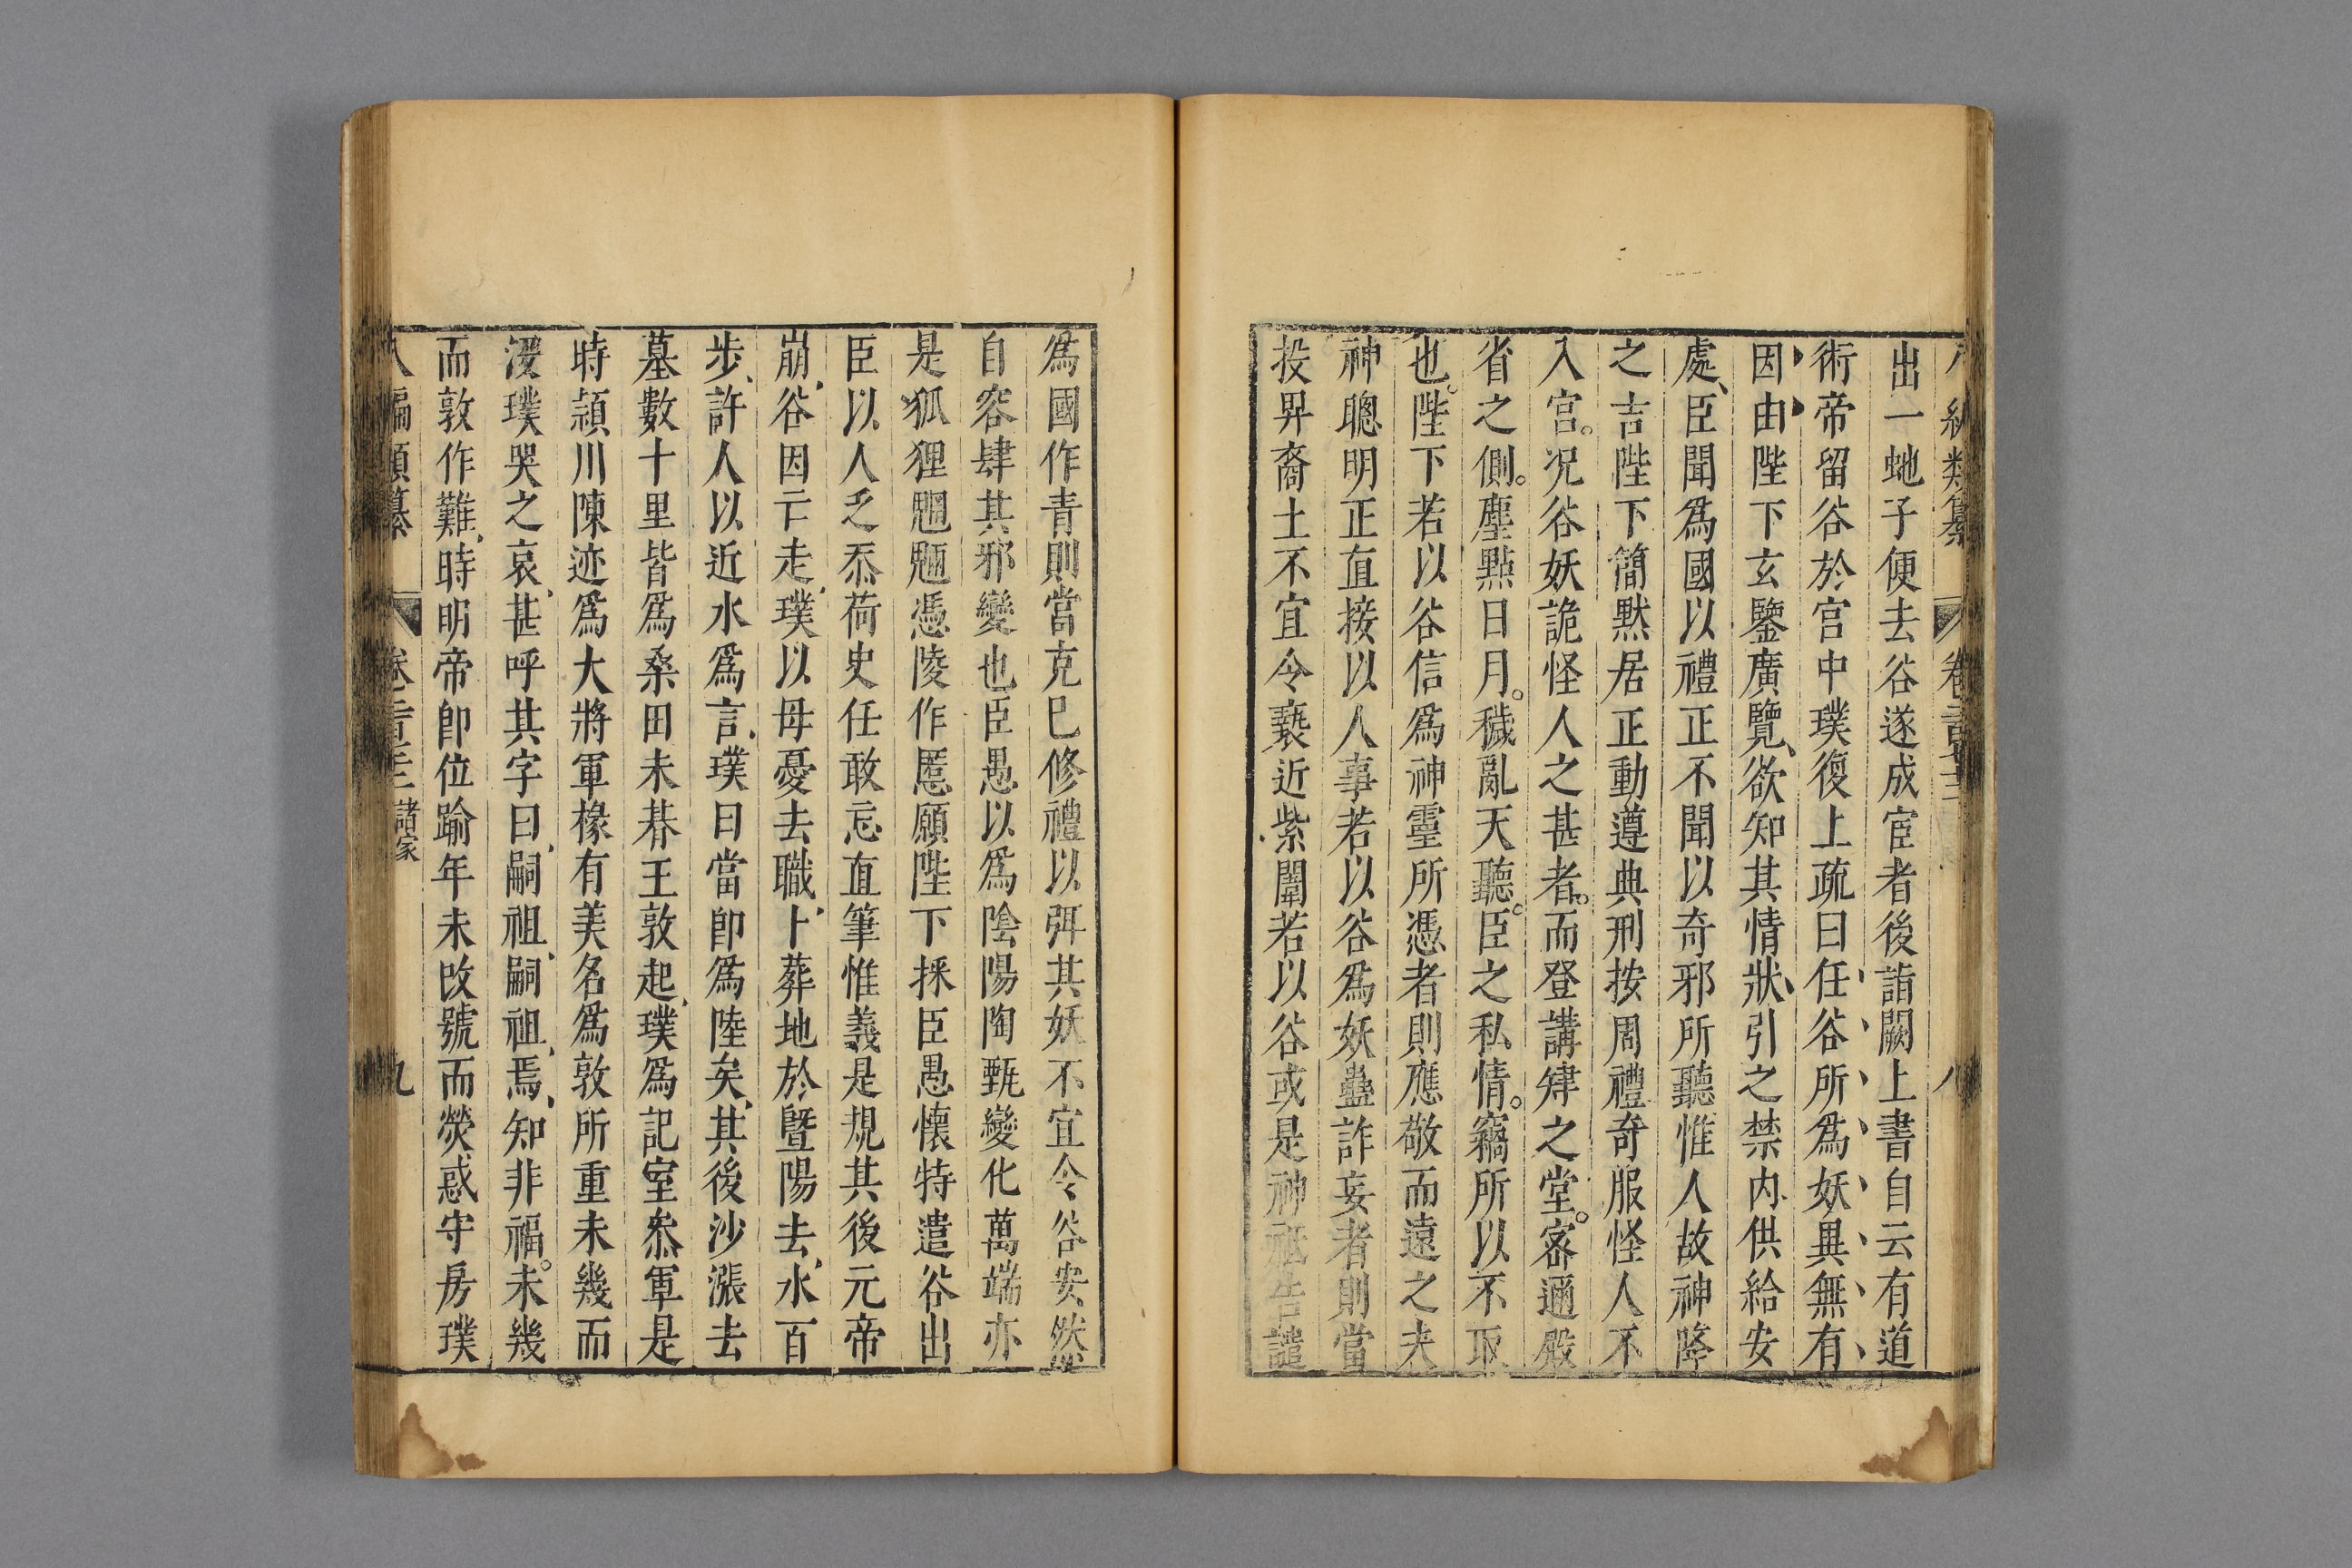 編類纂 卷 八
出一虵子便去谷遂成宦者後詣闕上書自云有道
術帝留谷於宫中璞復上疏曰任谷所爲妖異無有
因由陛下玄鑒廣覽欲知其情狀引之禁内供給安
處臣聞爲國以禮正不聞以奇邪所聽惟人故神降
之吉陛下簡默居正動遵典刑按周禮奇服怪人不
入宫况谷妖詭怪人之甚者而登講肂之堂宻邇殿
省之側塵點日月穢亂天聽臣之私情竊所以不取
也陛下若以谷信爲神靈所憑者則應敬而遠之夫
神聰明正直接以人事若以谷爲妖蠱詐妄者則當
投畀裔土不宜令褻近紫闥若以谷或是神祗告譴
爲國作眚則當克已修禮以弭其妖不宜令谷安然
自容肆其邪變也臣愚以爲陰陽陶甄變化萬端亦
是狐狸魍魎憑陵作慝願陛下採臣愚懷特遣谷出
臣以人乏忝荷史任敢忘直筆惟義是規其後元帝
崩谷因亡走璞以母憂去職卜葬地於曁陽去水百
步許人以近水爲言璞曰當卽爲陸矣其後沙漲去
墓數十里皆爲桑田未朞王敦起璞爲記室叅軍是
時潁川陳迹爲大將軍椽有美名爲敦所重未幾而
沒璞哭之哀甚呼其字曰嗣祖嗣祖焉知非福未幾
而敦作難時明帝卽位踰年未改號而熒惑守房璞
八編類纂 卷 諸家 九